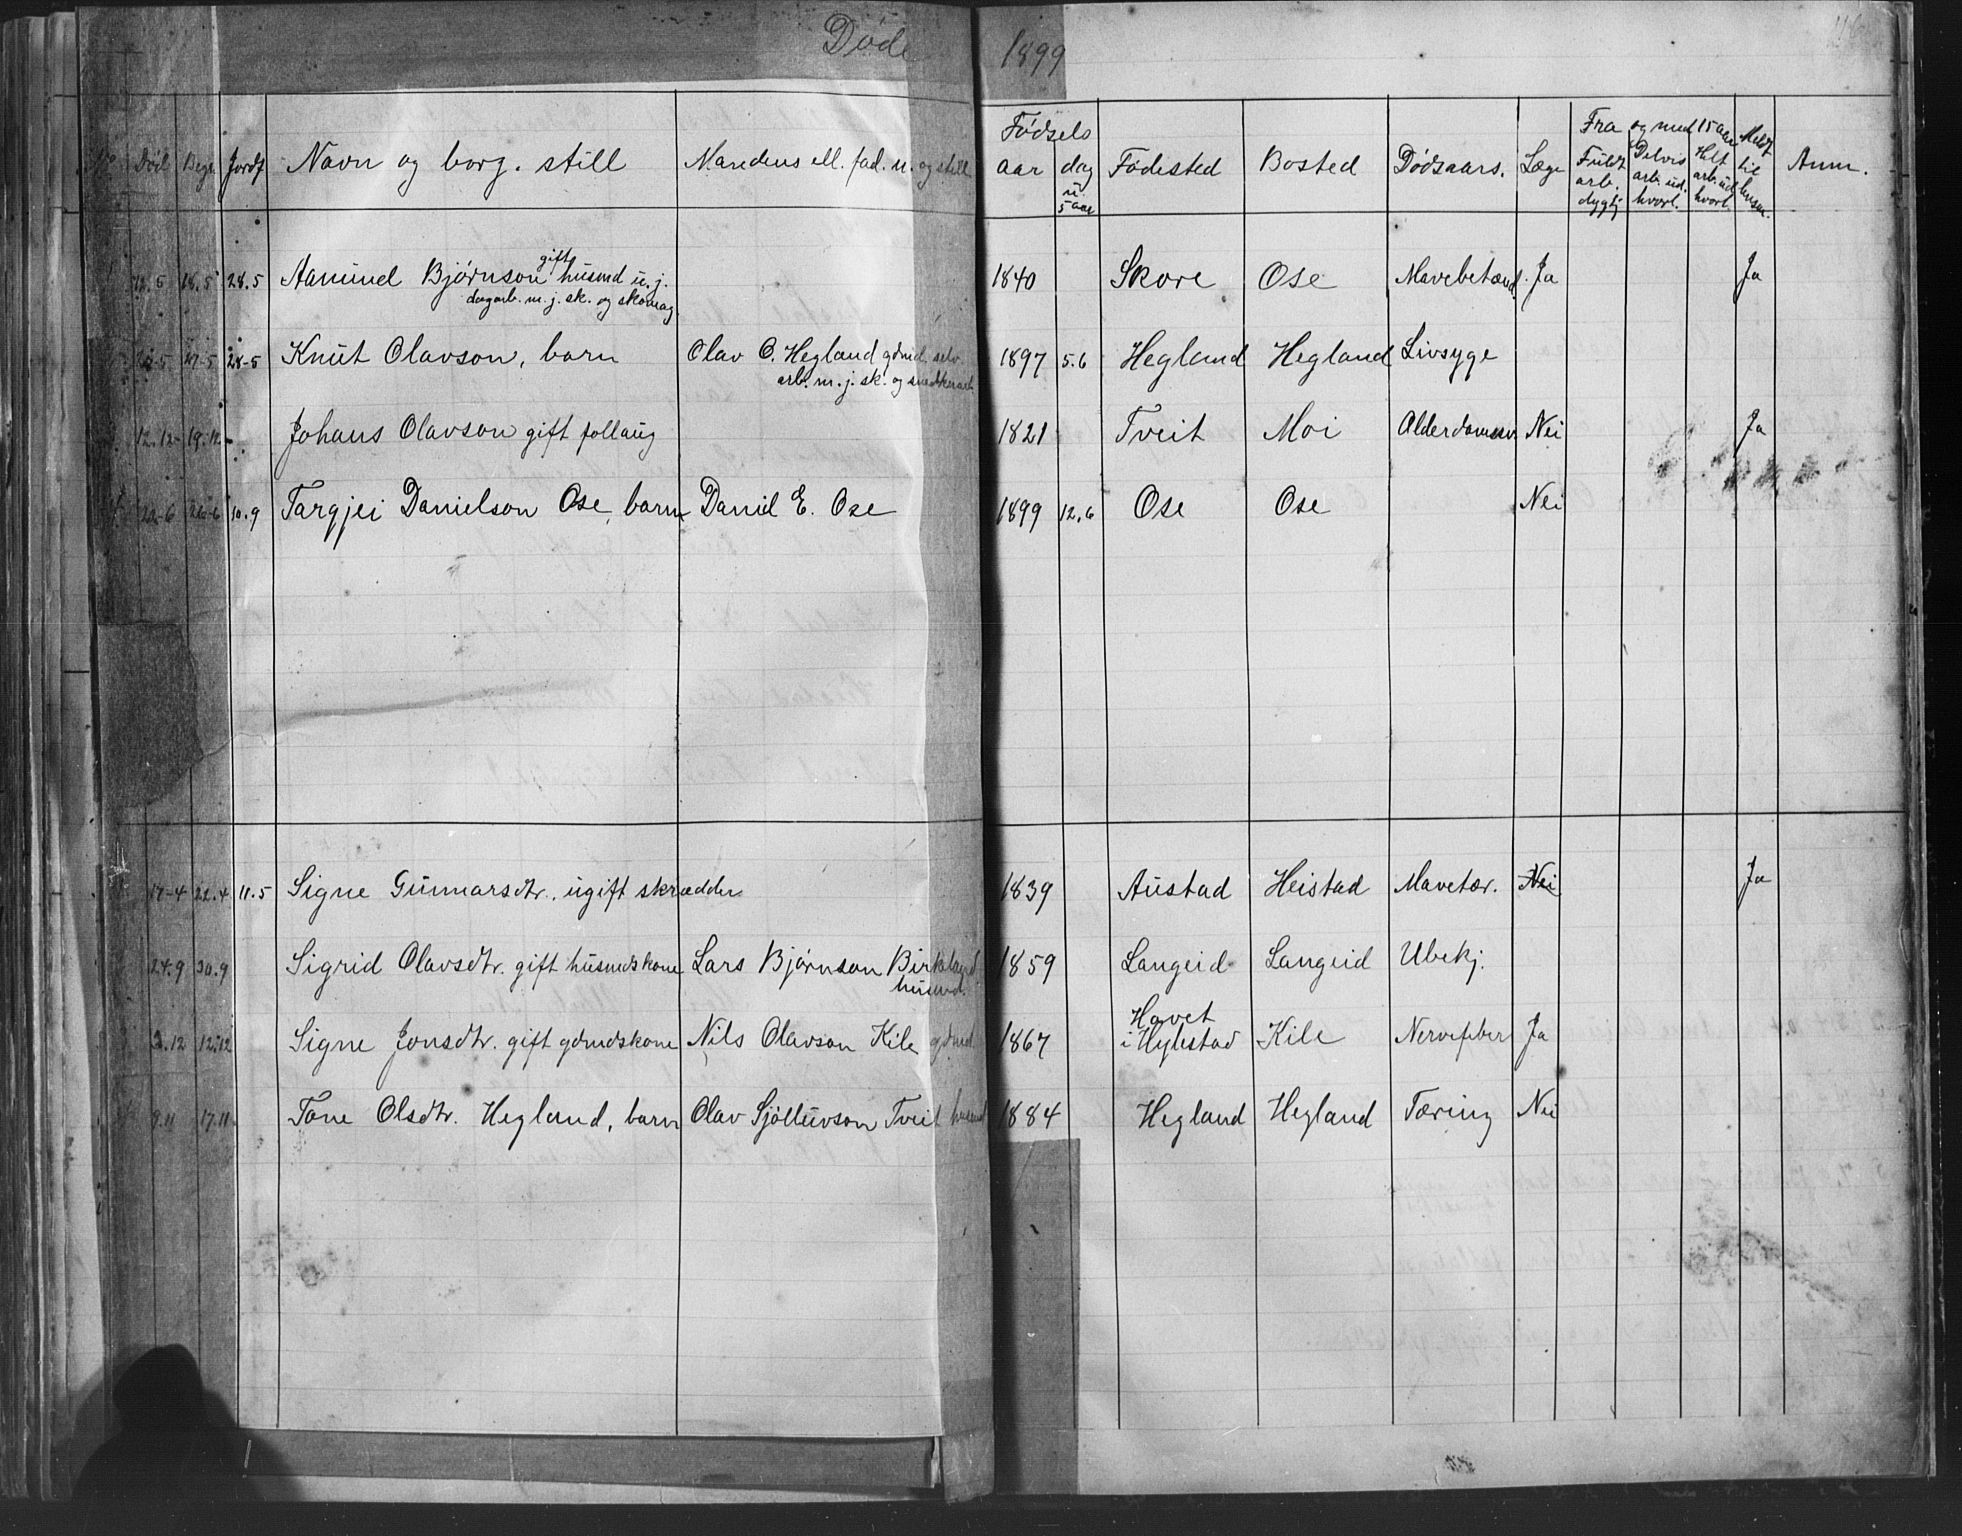 Døde 1899
No Død Begr. Jordf Navn og borg. still Mandens ell. fad. n. og still Fødsels aar dag u. 5 aar Fødested Bosted Dødsaars. Læge Fra og med 15 aar Fuldt arb. dygtig Delvis arb. ud. hvorl. Helt arb. ud hvorl. Meldt til Anm.
12.5 18.5 28.5 Aamund Bjørnson gift husmd u. j. 1840 Skore Ose Mavebetænd. Ja Ja
dagarb. m. j. sk. og skomag.
22-5 27-5 28-5 Knut Olavson, barn Olav O. Hegland gdmd. selv. 1897 5.6 Hegland Hegland Livsyge
arb. m. j. sk. og snedkerarb.
12.12- 19.12- Johans Olavson gift follaug 1821 Tveit Moi Alderdomssv Nei Ja
22-6 26-6 10.9 Targjei Danielson Ose, barn Daniel E. Ose 1899 12.6 Ose Ose Nei
17-4 22.4 11.5 Signe Gunnarsdtr. ugift skrædder 1839 Austad Heistad Mavetær. Nei Ja
24.9 30.9 Sigrid Olavsdtr. gift husmdskone Lars Bjørnson Birkeland 1859 Langeid Langeid Ubekj.
husmd.
3.12 12.12 Signe Jonsdtr. gift gdmdskone Nils Olavson Kile gdmd 1867 Hovet i Hylestad Kile Nervefeber Ja
9.11 17.11 Tone Olsdtr. Hegland, barn Olav Sjøltuvson Tveit husmd 1884 Hegland Hegland Tæring Nei